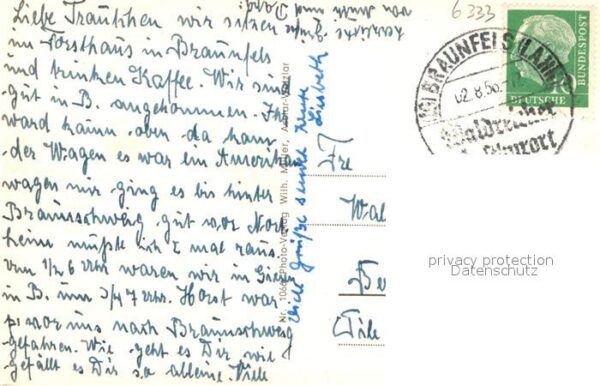 Liebe Trautchen wir sitzen
im Forsthaus in Braunfels
und trinken Kaffee. Wir sind
gut in B. angekommen. Ihr
ward kaum aber da kam
der Wagen es war ein Amerikan
wagen mir ging es bis hinter
Braunschweig gut vor Nort
heim mußte ich 1 mal raus.
Um 1/2 6 Uhr waren wir in Gießen
in B. um 3/4 7 Uhr. Horst war
vor uns nach Braunschweig
gefahren. Wie geht es Dir, wie
gefällt es Dir so alleine. Viele
von Mutti und
herzliche Grüße
Viele Grüße sendet
Liesbeth
Nr. 106 Photo-Verlag Wilh. Müller, Wetzlar
6333
BRAUNFELS (LAHN)
02.8.56
Waldreicher
Kurort
DEUTSCHE
BUNDESPOST
10
Fr
Wal
Be
privacy protection
Datenschutz